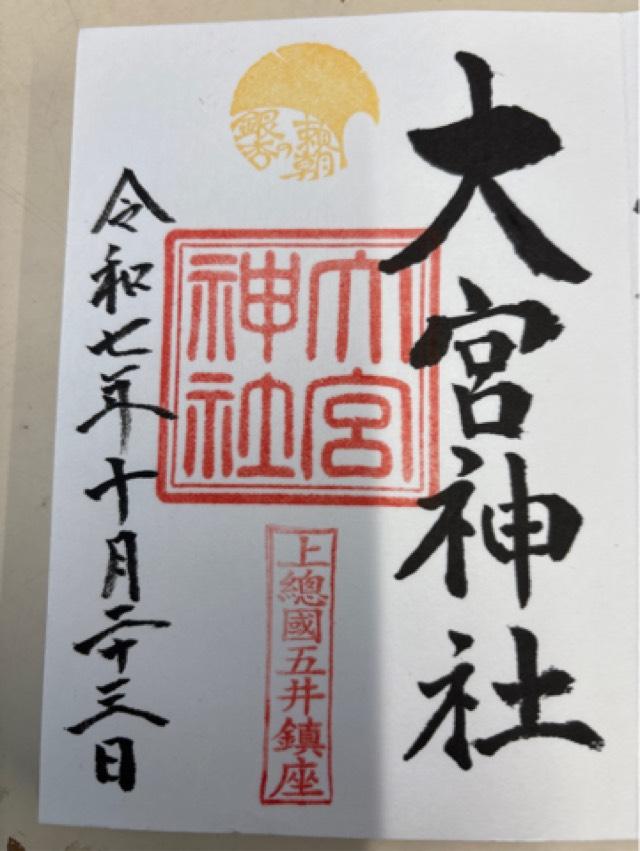 大宮神社
頼朝の
銀杏
大宮
神社
上總國五井鎮座
令和七年十月二十三日